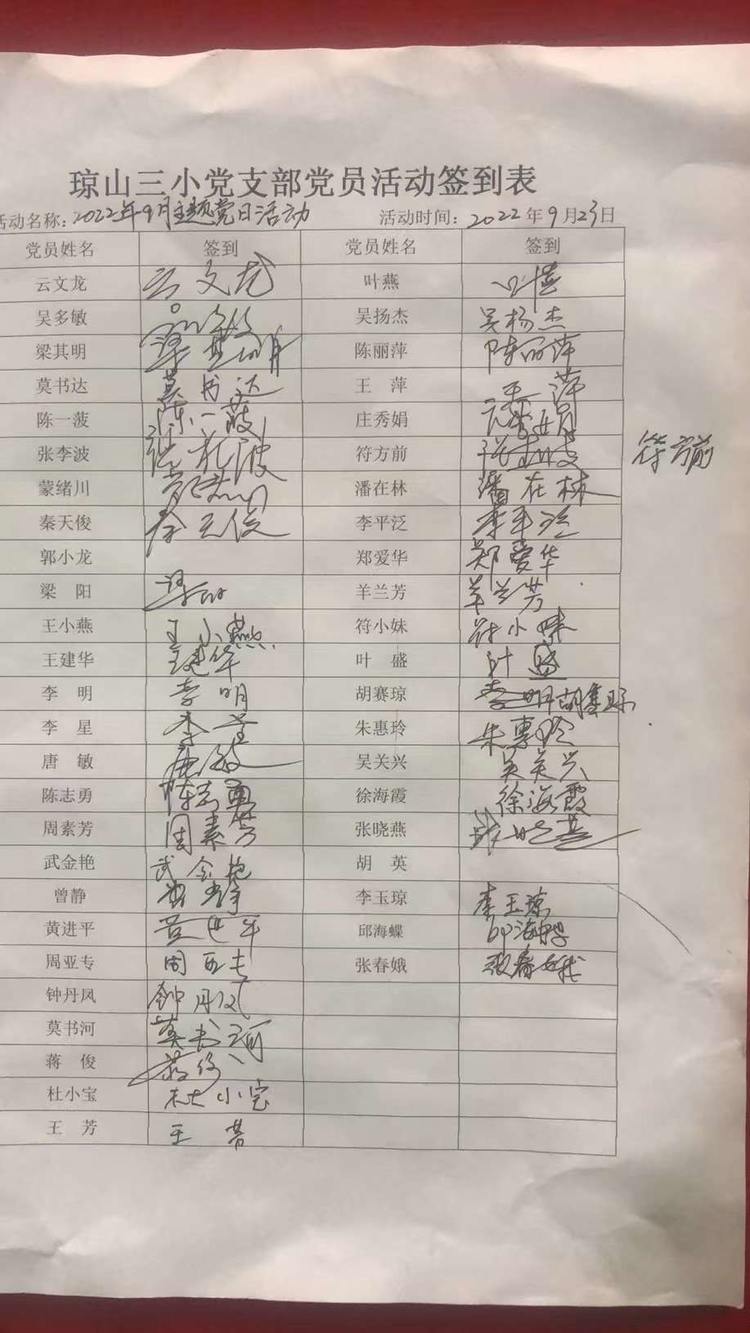 琼山三小党支部党员活动签到表
活动名称：2022年9月主题党日活动 活动时间：2022年9月23日
党员姓名 签到 党员姓名 签到
云文龙 云文龙 叶燕 叶燕
吴多敏 吴扬杰 吴杨杰
梁其明 梁其明 陈丽萍 陈丽萍
莫书达 莫书达 王萍 王萍
陈一菠 陈一菠 庄秀娟
张李波 张李波 符方前 张李波 符方前
蒙绪川 潘在林 潘在林
秦天俊 秦天俊 李平泛 李平泛
郭小龙 郑爱华 郑爱华
梁阳 梁阳 羊兰芳 羊兰芳
王小燕 王小燕 符小妹 符小妹
王建华 王建华 叶盛 叶盛
李明 李明 胡赛琼 李明 胡赛琼
李星 李星 朱惠玲 朱惠玲
唐敏 唐敏 吴关兴 吴关兴
陈志勇 陈志勇 徐海霞 徐海霞
周素芳 周素芳 张晓燕 张晓燕
武金艳 武金艳 胡英
曾静 曾静 李玉琼 李玉琼
黄进平 黄进平 邱海蝶 邱海蝶
周亚专 周亚专 张春娥 张春娥
钟丹凤 钟丹凤
莫书河 莫书河
蒋俊 蒋俊
杜小宝 杜小宝
王芳 王芳